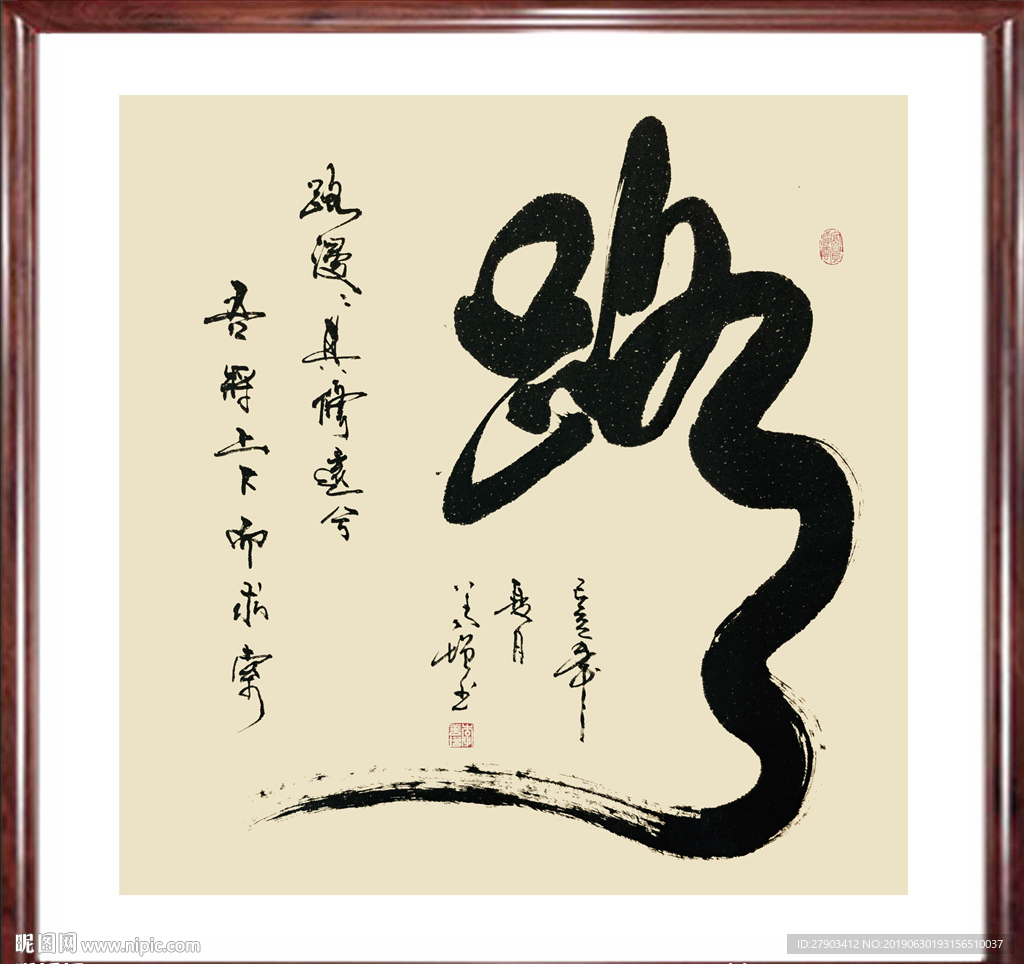 路
路漫漫其修遠兮
吾將上下而求索
己亥年
夏月
美增书
昵图网 www.nipic.com
ID:27903412 NO:20190630193156510037